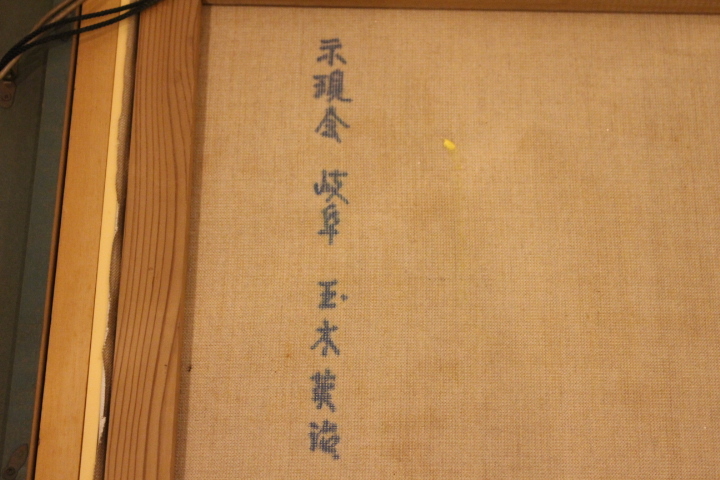 示現会 岐阜 玉木英治